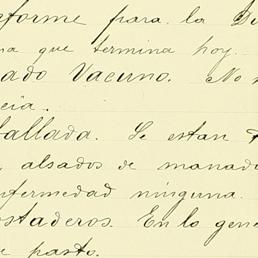 forme para la D
na que termina hoy.
ado Vacuno. No
cia.
ballada. Se estan
alsados de manad
nfermedad ninguna.
ostaderos. En lo gene
e pasto.